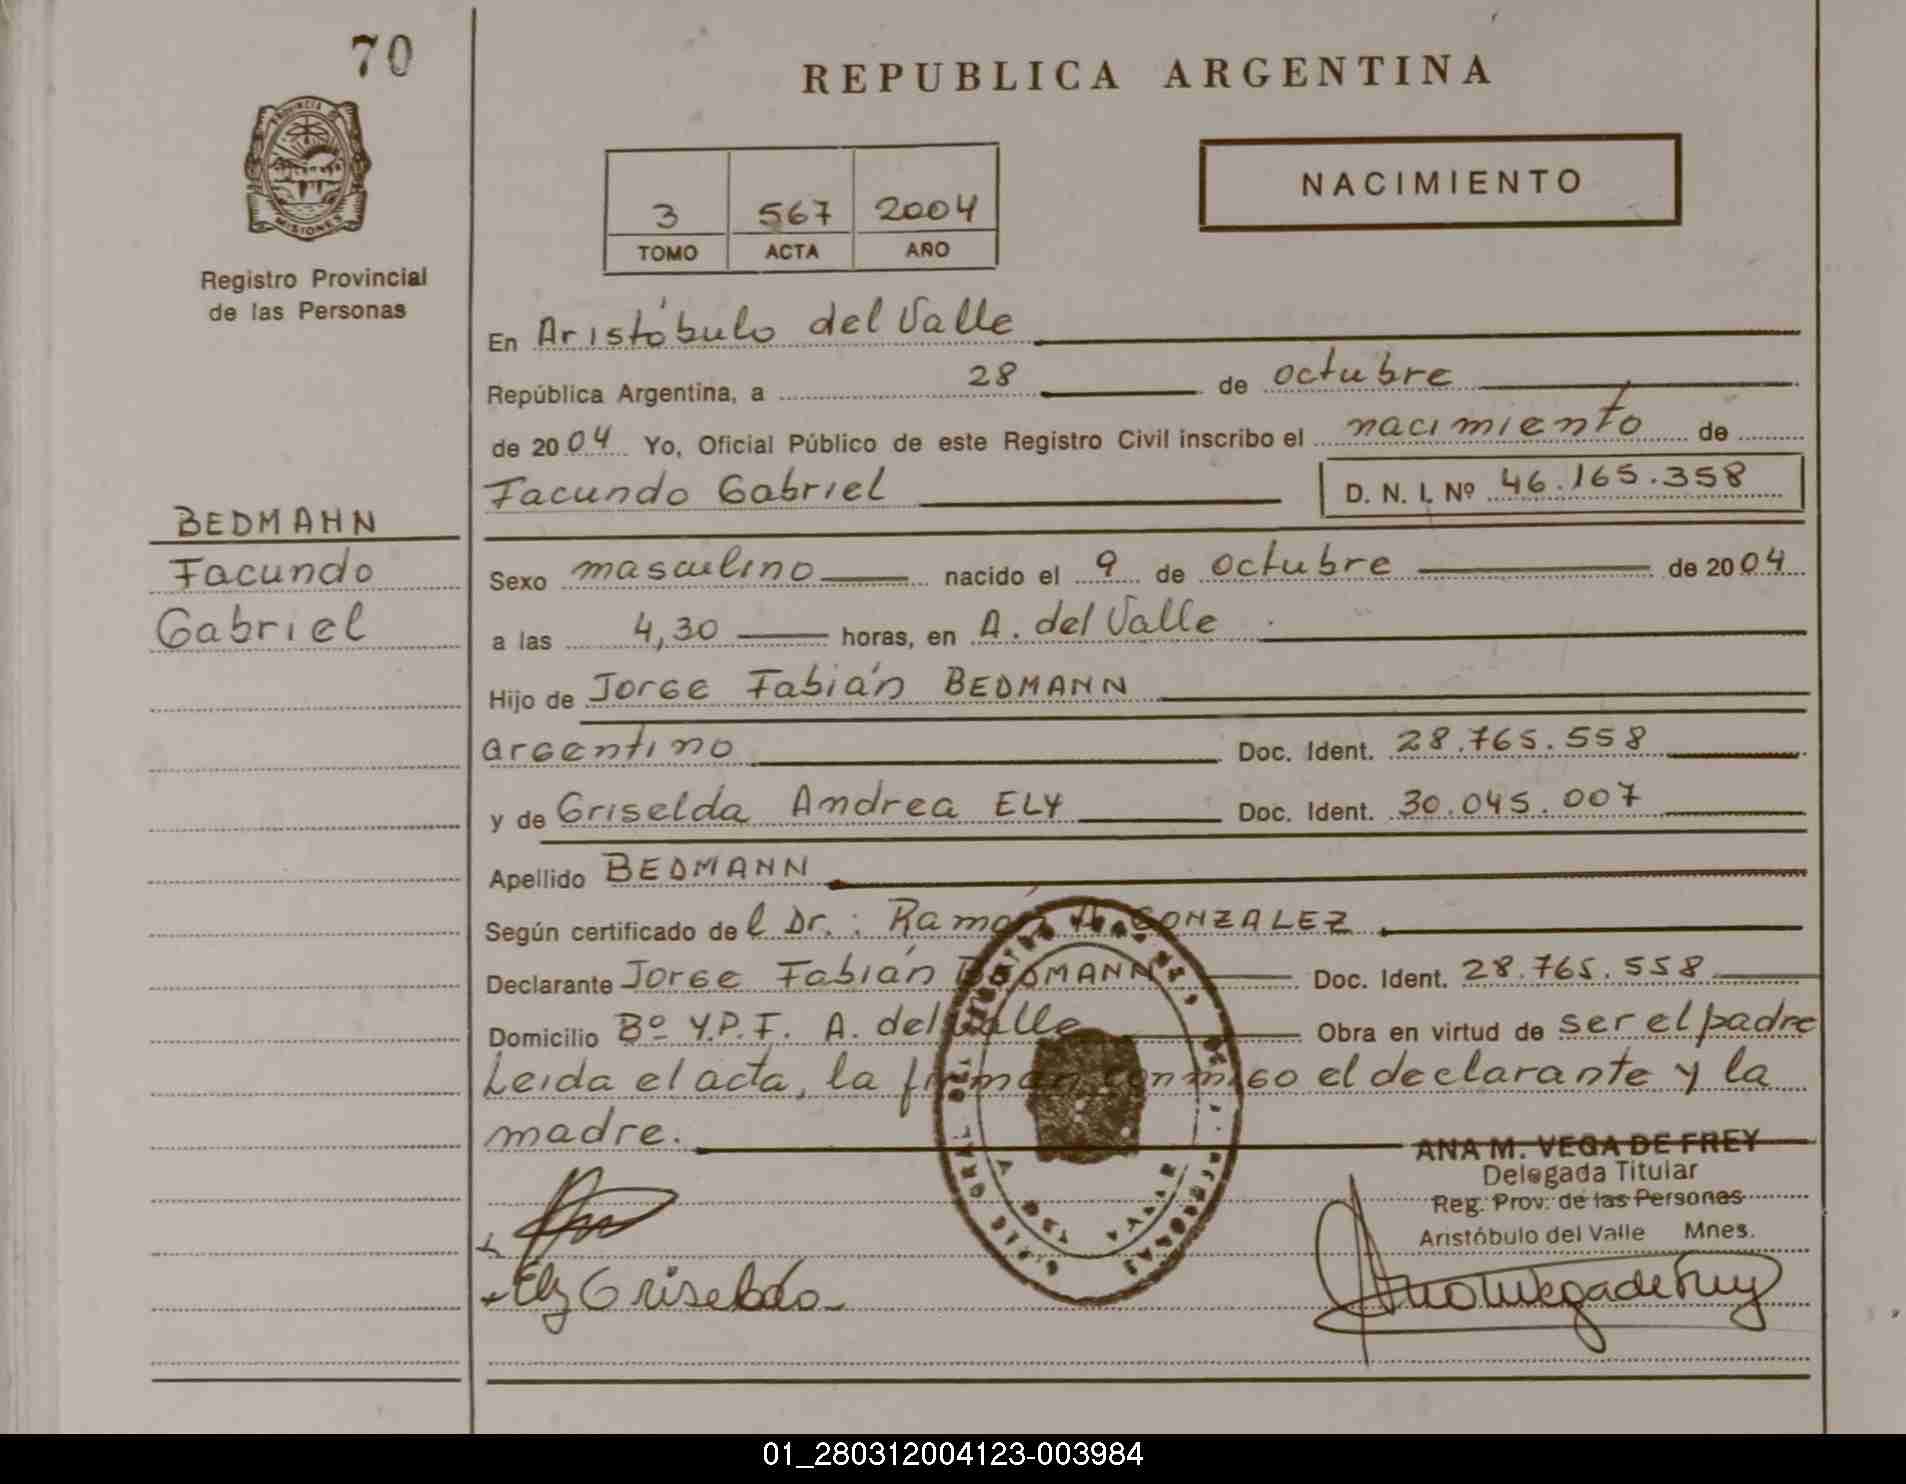 70
PROVINCIA DE
MISIONES
Registro Provincial
de las Personas
BEDMANN
Facundo
Gabriel
REPUBLICA ARGENTINA
NACIMIENTO
3 567 2004
TOMO ACTA AÑO
En Aristóbulo del Valle
República Argentina, a 28 de octubre
de 2004 Yo, Oficial Público de este Registro Civil inscribo el nacimiento de
Facundo Gabriel D. N. I. Nº 46.165.358
Sexo masculino nacido el 9 de octubre de 2004
a las 4,30 horas, en A. del Valle
Hijo de Jorge Fabián BEDMANN
argentino Doc. Ident. 28.765.558
y de Griselda Andrea ELY Doc. Ident. 30.045.007
Apellido BEDMANN
Según certificado del Dr.: Ramón A. GONZALEZ
Declarante Jorge Fabián BEDMANN Doc. Ident. 28.765.558
Domicilio Bº Y.P.F. A. del Valle Obra en virtud de ser el padre
Leida el acta, la firman conmigo el declarante y la
madre.
ANA M. VEGA DE FREY
Delegada Titular
Reg. Prov. de las Personas
Aristóbulo del Valle Mnes.
Ely Griselda
01_280312004123-003984